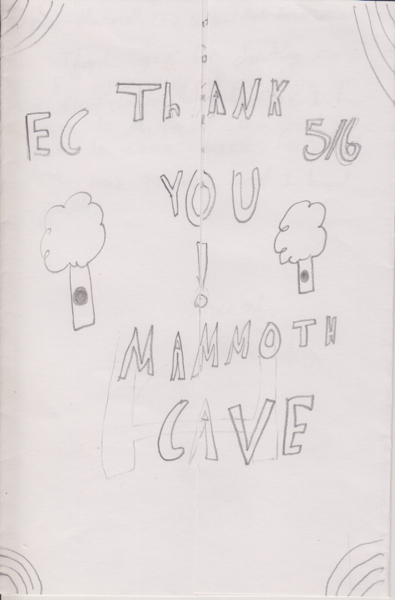 EC ThANK 5/6
YOU
!
MAMMOTH
CAVE